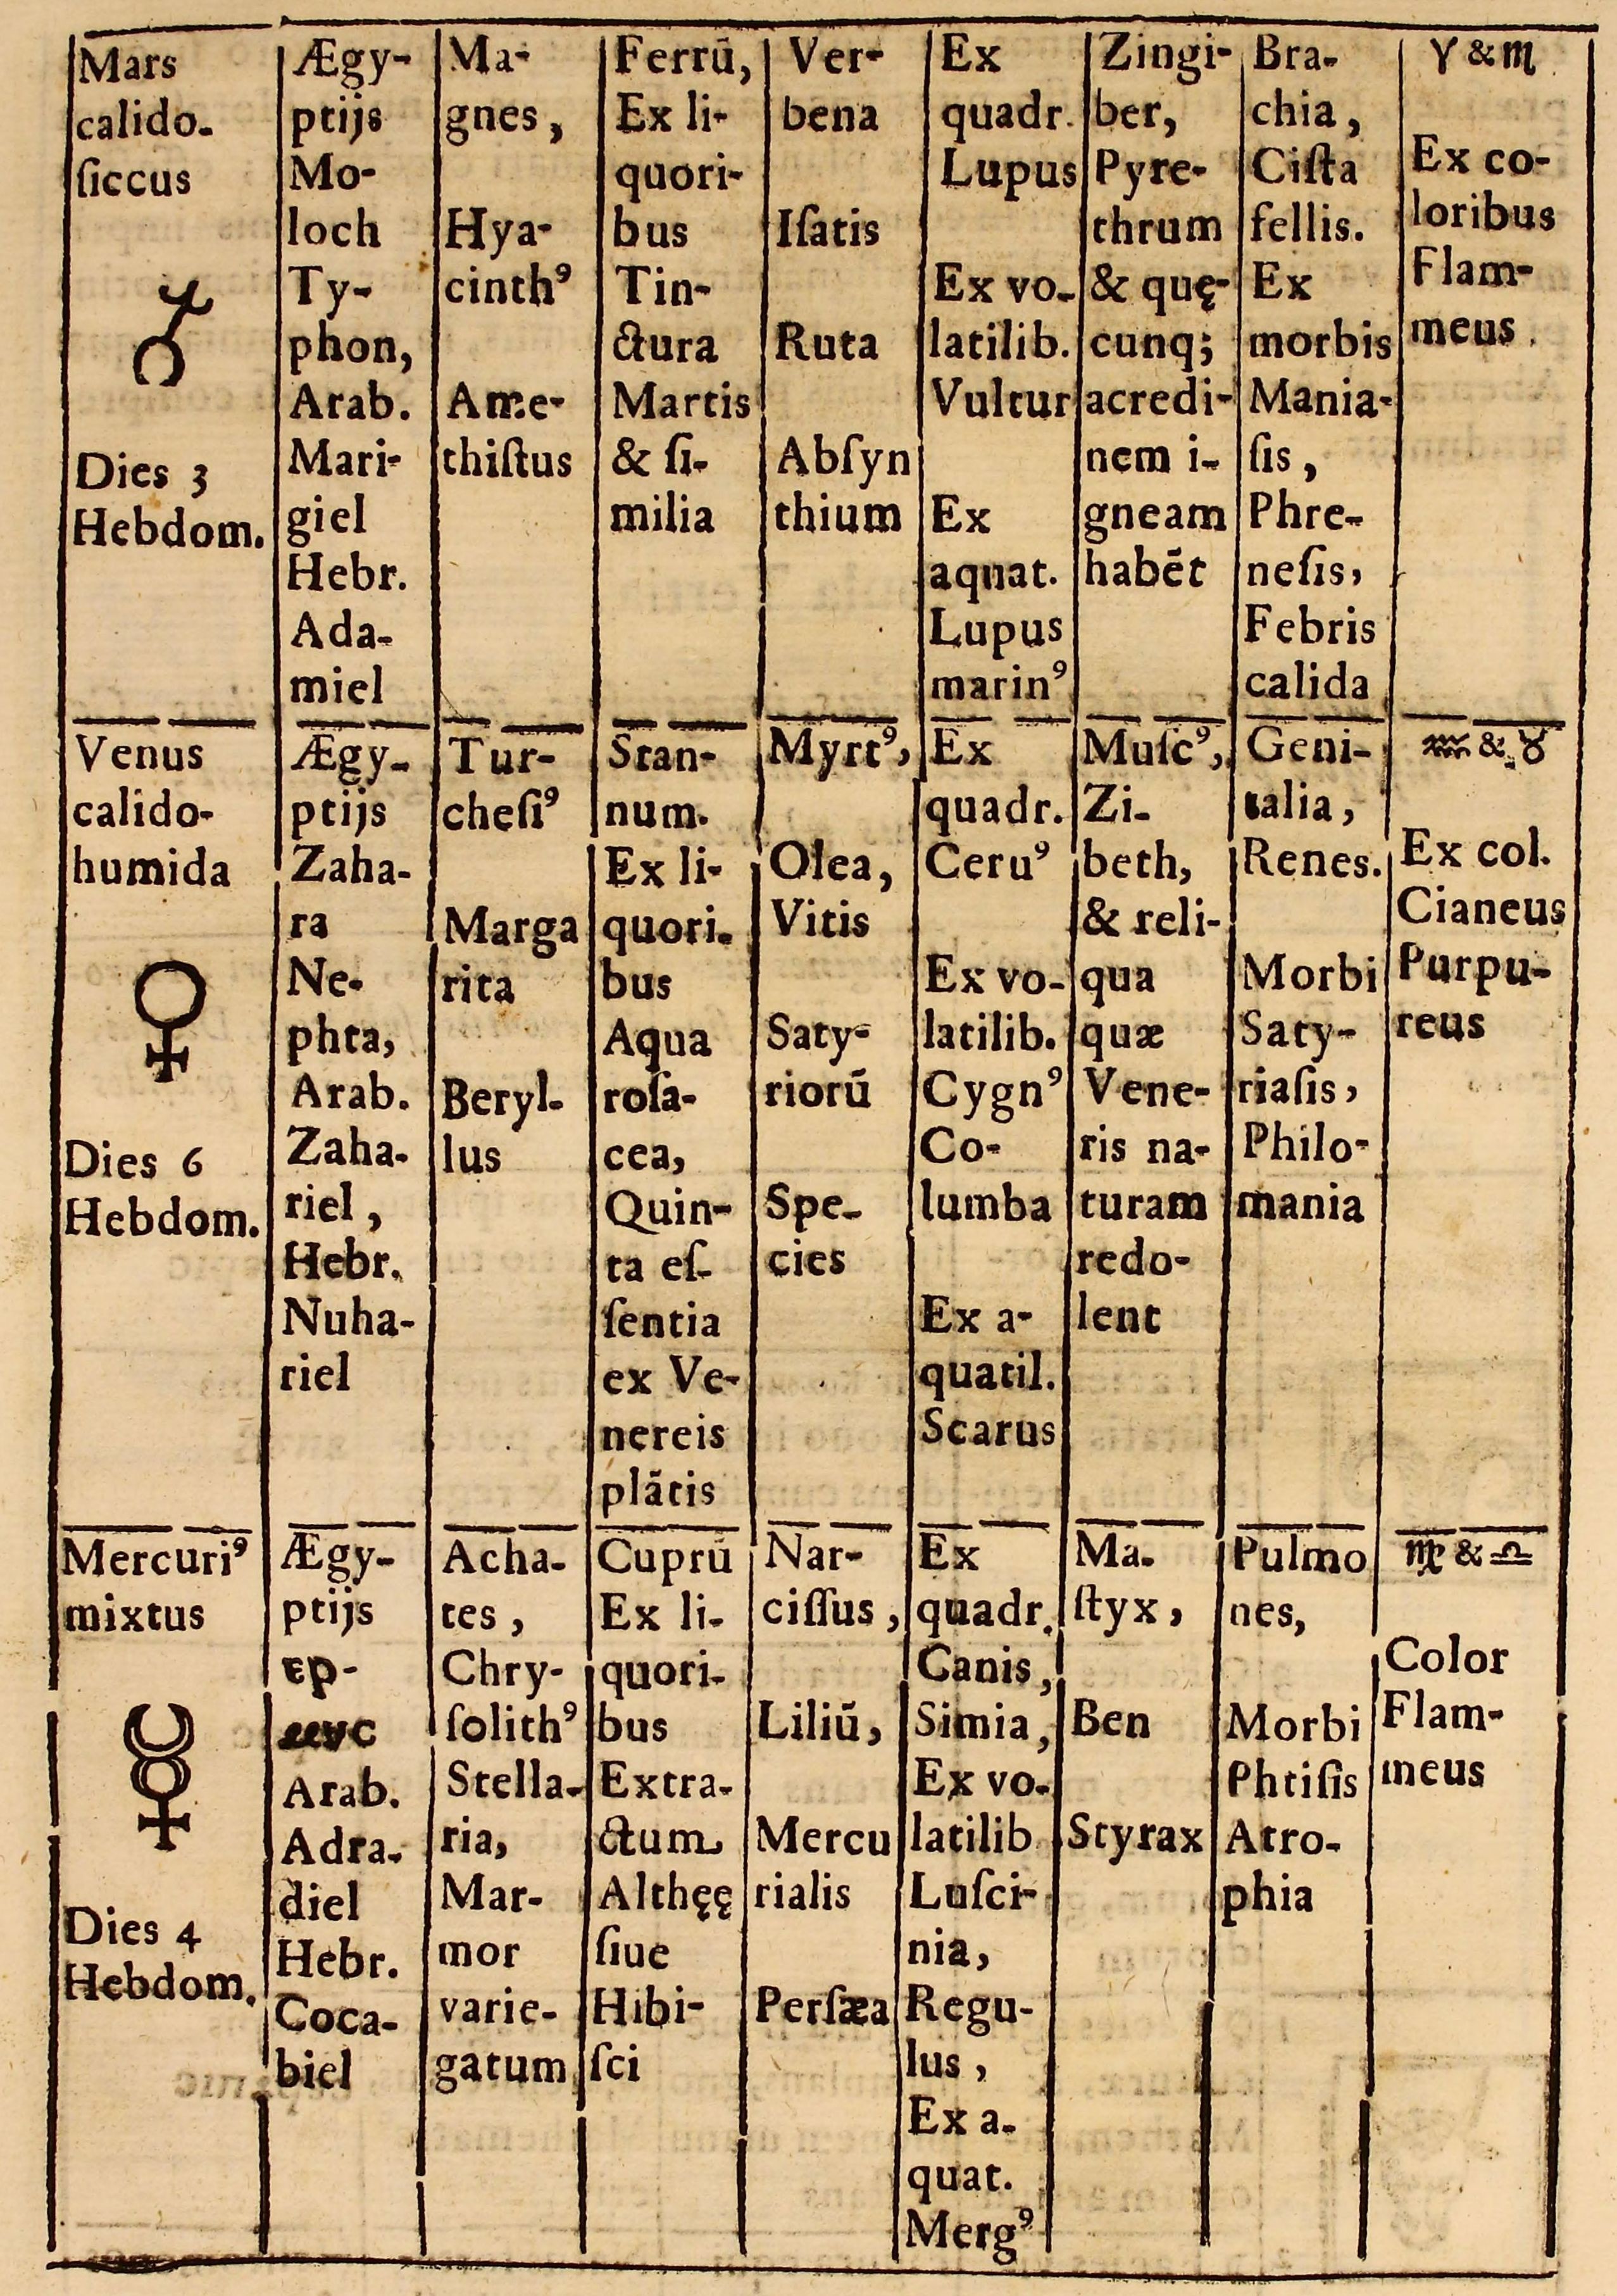 Mars
calido-
ſiccus
♂
Dies 3
Hebdom.
Ægy-
ptijs
Mo-
loch
Ty-
phon,
Arab.
Mari-
giel
Hebr.
Ada-
miel
Ma-
gnes,
Hya-
cinthꝰ
Ame-
thiſtus
Ferrū,
Ex li-
quori-
bus
Tin-
ctura
Martis
& ſi-
milia
Ver-
bena
Iſatis
Ruta
Abſyn
thium
Ex
quadr.
Lupus
Ex vo-
latilib.
Vultur
Ex
aquat.
Lupus
marinꝰ
Zingi-
ber,
Pyre-
thrum
& quę-
cunq;
acredi-
nem i-
gneam
habēt
Bra-
chia,
Ciſta
fellis.
Ex
morbis
Mania-
ſis,
Phre-
neſis,
Febris
calida
♈ & ♏
Ex co-
loribus
Flam-
meus.
Venus
calido-
humida
♀
Dies 6
Hebdom.
Ægy-
ptijs
Zaha-
ra
Ne-
phta,
Arab.
Zaha-
riel,
Hebr.
Nuha-
riel
Tur-
cheſiꝰ
Marga
rita
Beryl-
lus
Stan-
num.
Ex li-
quori-
bus
Aqua
roſa-
cea,
Quin-
ta eſ-
ſentia
ex Ve-
nereis
plātis
Myrtꝰ,
Olea,
Vitis
Saty-
riorū
Spe-
cies
Ex
quadr.
Ceruꝰ
Ex vo-
latilib.
Cygnꝰ
Co-
lumba
Ex a-
quatil.
Scarus
Muſcꝰ,
Zi-
beth,
& reli-
qua
quæ
Vene-
ris na-
turam
redo-
lent
Geni-
talia,
Renes.
Morbi
Saty-
riaſis,
Philo-
mania
♒ & ♉
Ex col.
Cianeus
Purpu-
reus
Mercuriꝰ
mixtus
☿
Dies 4
Hebdom.
Ægy-
ptijs
ⲉⲣ-
ⲙⲏⲥ
Arab.
Adra-
diel
Hebr.
Coca-
biel
Acha-
tes,
Chry-
ſolithꝰ
Stella-
ria,
Mar-
mor
varie-
gatum
Cuprū
Ex li-
quori-
bus
Extra-
ctum
Althęę
ſiue
Hibi-
ſci
Nar-
ciſſus,
Liliū,
Mercu
rialis
Perſæa
Ex
quadr.
Canis,
Simia,
Ex vo-
latilib
Luſci-
nia,
Regu-
lus,
Ex a-
quat.
Mergꝰ
Ma-
ſtyx,
Ben
Styrax
Pulmo
nes,
Morbi
Phtiſis
Atro-
phia
♍ & ♎
Color
Flam-
meus